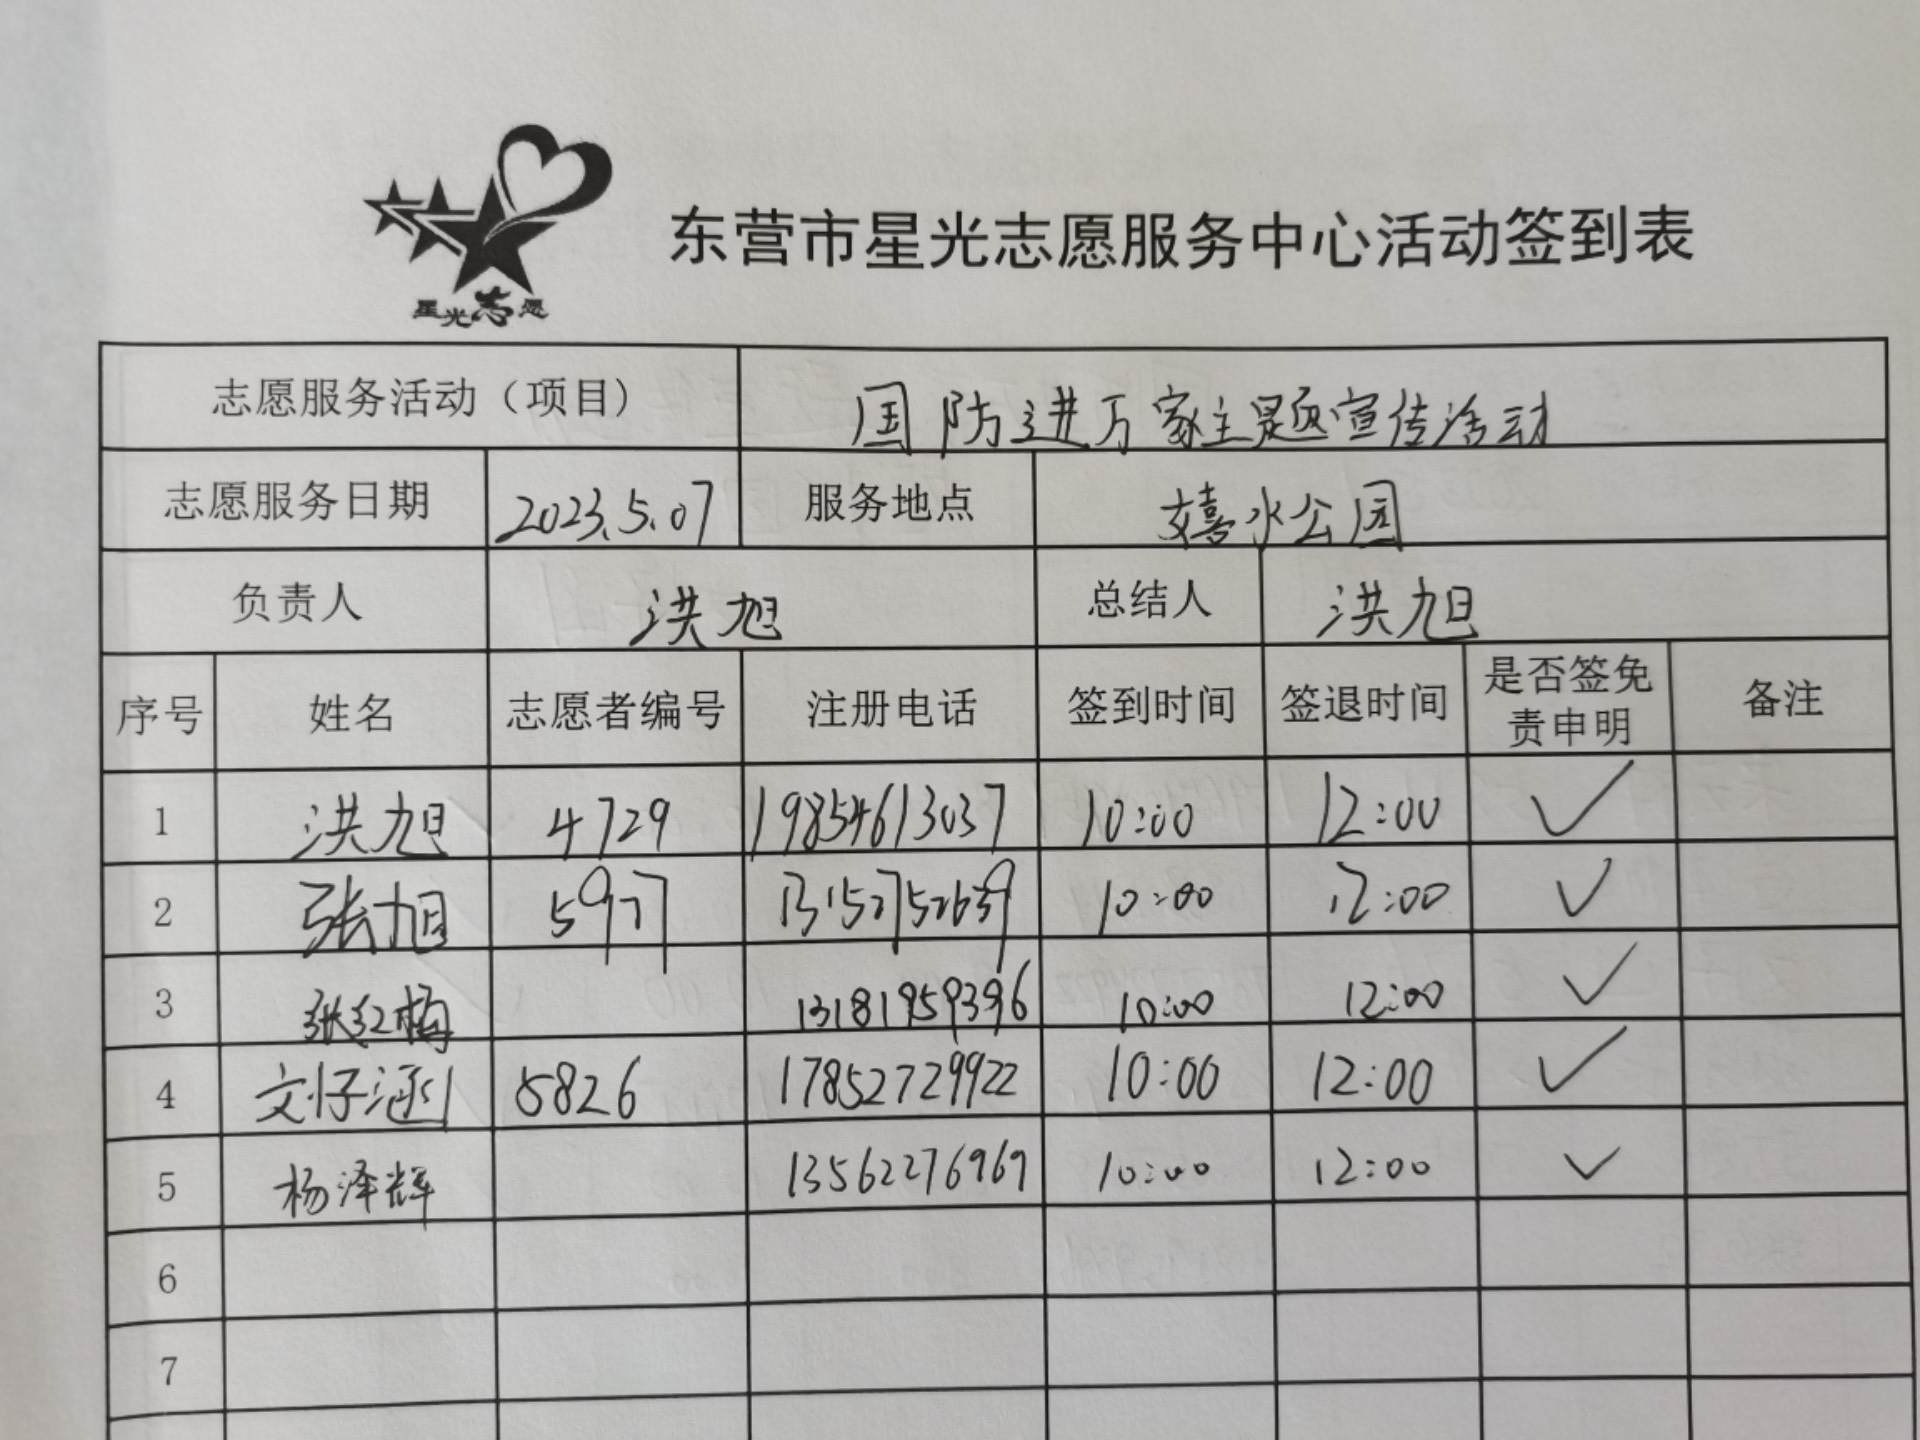 星光志愿
东营市星光志愿服务中心活动签到表
志愿服务活动（项目） 国防进万家主题宣传活动
志愿服务日期 2023.5.07 服务地点 嬉水公园
负责人 洪旭 总结人 洪旭
序号 姓名 志愿者编号 注册电话 签到时间 签退时间 是否签免责申明 备注
1 洪旭 4729 19854613037 10:00 12:00 ✓
2 张旭 5977 13152752639 10:00 12:00 ✓
3 张红梅 13181959396 10:00 12:00 ✓
4 文仔涵 5826 17852729922 10:00 12:00 ✓
5 杨泽辉 13562276969 10:00 12:00 ✓
6
7